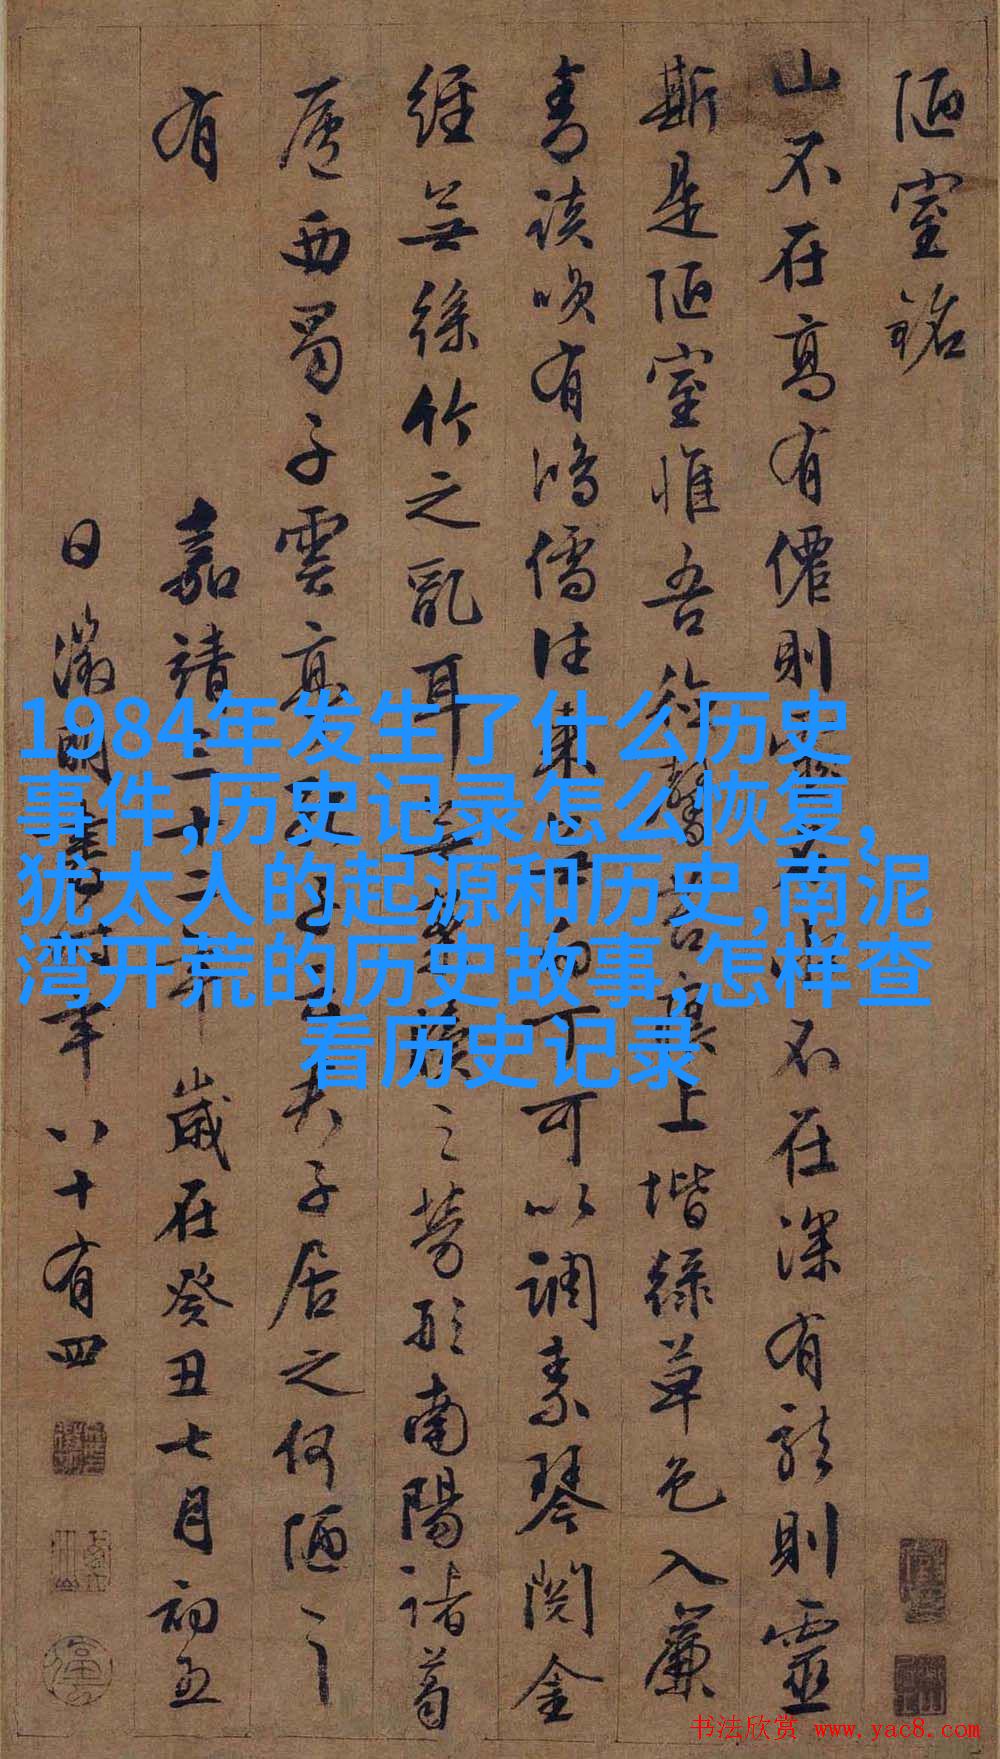 陋室銘
山不在高有僊則不在深有龍則靈
斯是陋室惟吾德馨苔痕上堦綠草色入簾
青談笑有鴻儒往來無白丁可以調素琴閱金
經無絲竹之亂耳無案牘之勞形南陽諸葛
廬西蜀子雲亭夫子居之何陋之
有
嘉靖三十二年歲在癸丑七月初五
日徵明書時年八十有四
1984年发生了什么历史
事件,历史记录怎么恢复,
犹太人的起源和历史,南泥
湾开荒的历史故事,怎样查
看历史记录
书法欣赏 www.yac8.com